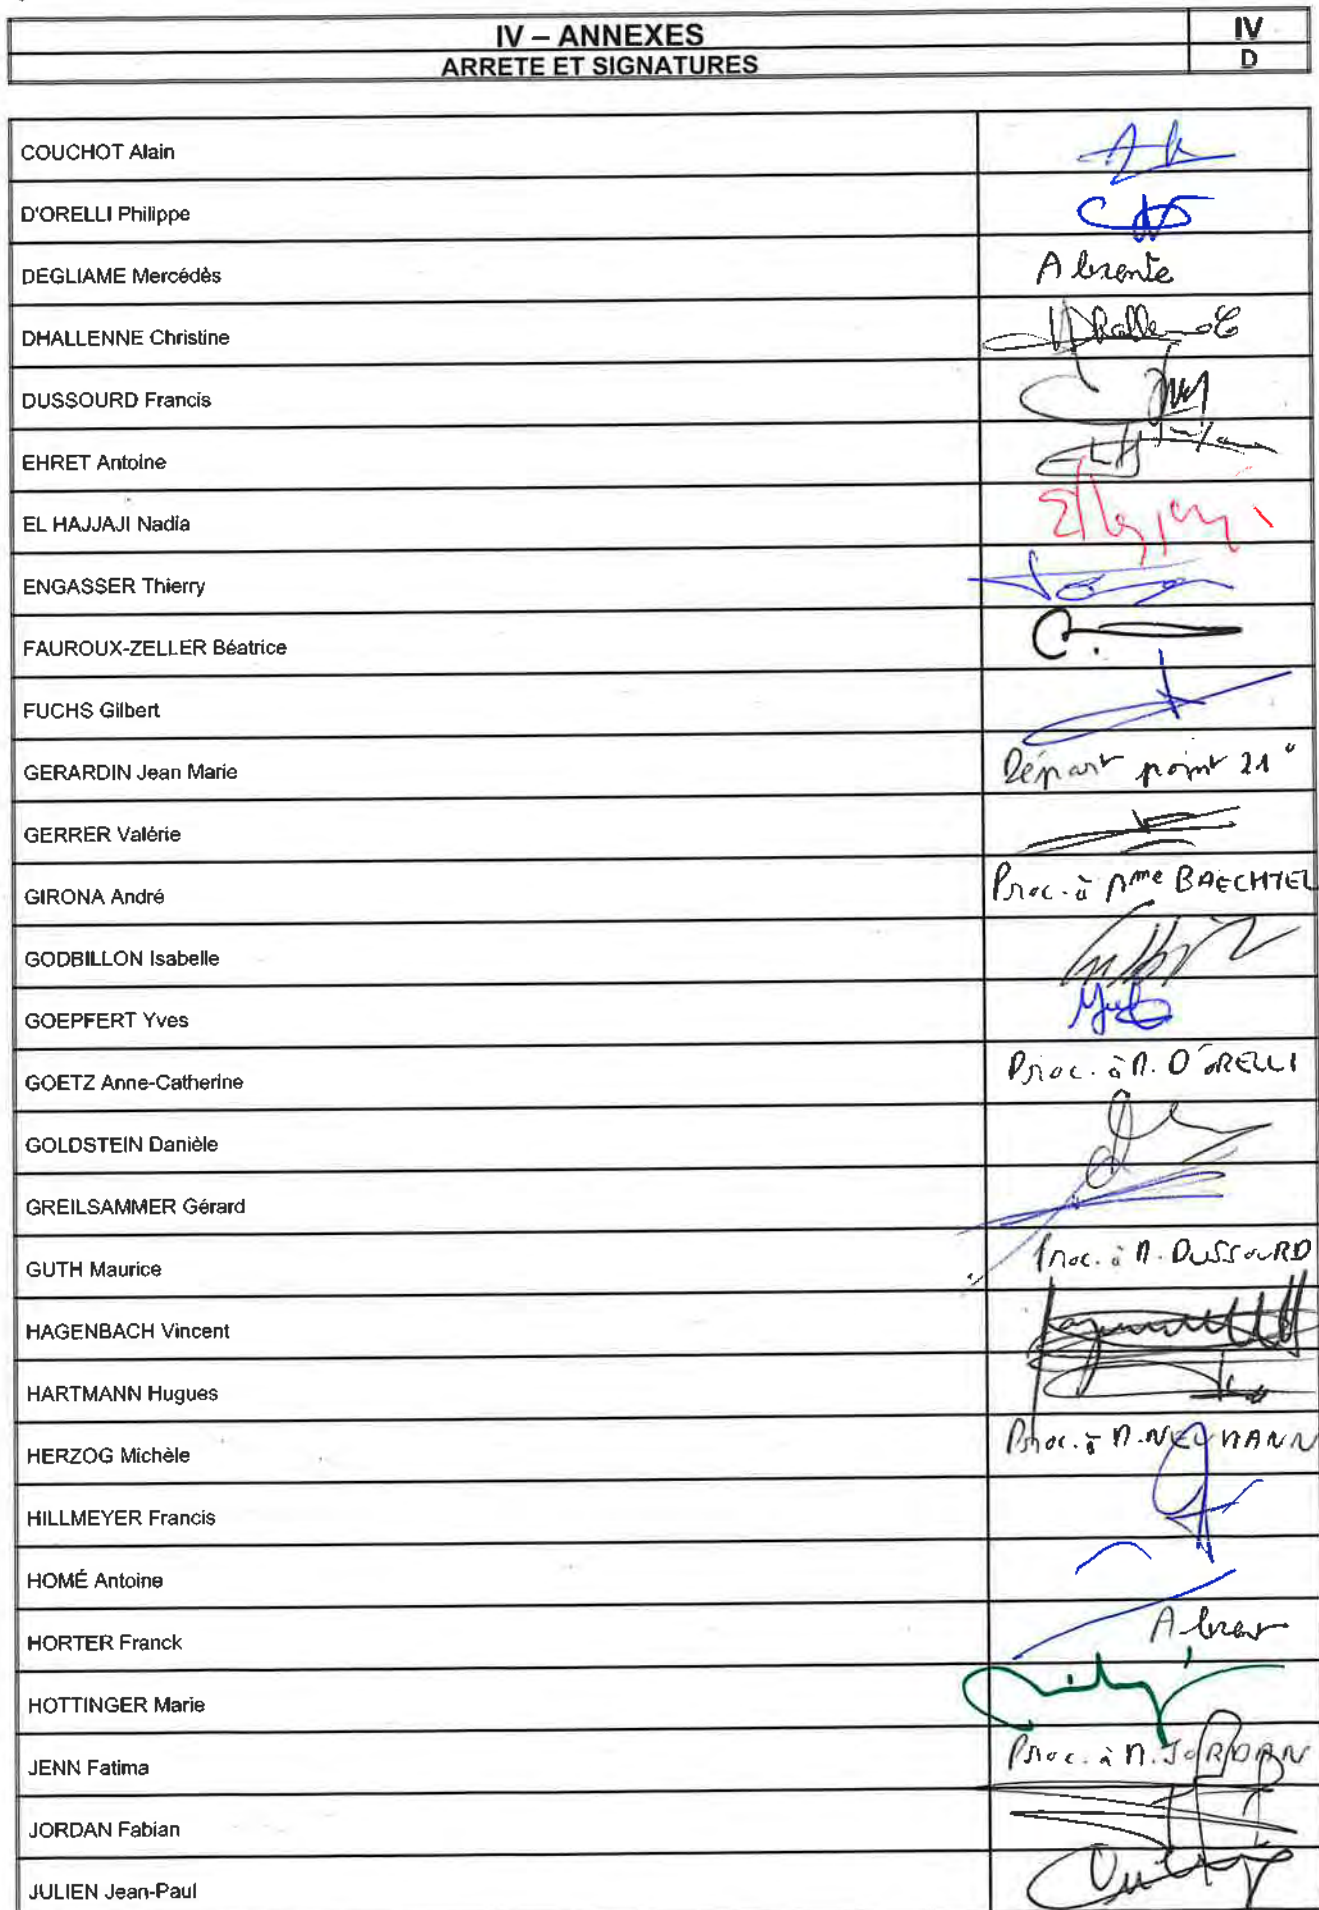 IV – ANNEXES
IV
ARRETE ET SIGNATURES
D
COUCHOT Alain
D'ORELLI Philippe
DEGLIAME Mercédès
Absente
DHALLENNE Christine
DUSSOURD Francis
EHRET Antoine
EL HAJJAJI Nadia
ENGASSER Thierry
FAUROUX-ZELLER Béatrice
FUCHS Gilbert
GERARDIN Jean Marie
Départ point 21
GERRER Valérie
GIRONA André
Proc. à Mme BAECHTEL
GODBILLON Isabelle
GOEPFERT Yves
GOETZ Anne-Catherine
Proc. à M. D'ORELLI
GOLDSTEIN Danièle
GREILSAMMER Gérard
GUTH Maurice
Proc. à M. DUSSOURD
HAGENBACH Vincent
HARTMANN Hugues
HERZOG Michèle
Proc. à M. NEUMANN
HILLMEYER Francis
HOMÉ Antoine
HORTER Franck
Absent
HOTTINGER Marie
JENN Fatima
Proc. à M. JORDAN
JORDAN Fabian
JULIEN Jean-Paul